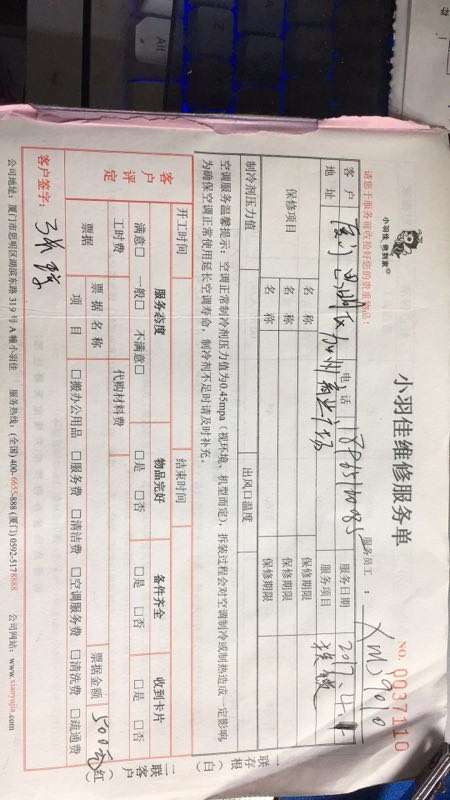 小羽佳 您到家
小羽佳维修服务单
NO. 0037110
请您于服务前收拾好您的贵重物品:
服务员工: XM3010
客户
电话
服务日期 2017.
地址 厦门思明区加州商业广场
服务项目
保修项目
名称
保修期限
名称
保修期限
名称
保修期限
制冷剂压力值
出风口温度
空调服务温馨提示:空调正常制冷剂压力值为0.45mpa(视环境、机型而定),拆装过程会对空调制冷或制热造成一定影响,
为确保空调正常使用延长空调寿命,制冷剂不足时请及时补充。
一联存根(白)
二联客户(红)
开工时间
结束时间
客户评定
服务态度
物品完好
备件齐全
收到卡片
满意□ 一般□ 不满意□
□是 □否
□是 □否
□是 □否
工时费
代购材料费
票据
票据名称
票据金额 500元
项目 □搬办公用品 □服务费 □清洁费 □空调服务费 □清洗费 □疏通费
客户签字:
公司地址:厦门市思明区湖滨东路 319 号 A 幢小羽佳
服务热线:(全国) 400-6655-888 (厦门) 0592-5178888
公司网站:www.xiaoyujia.com